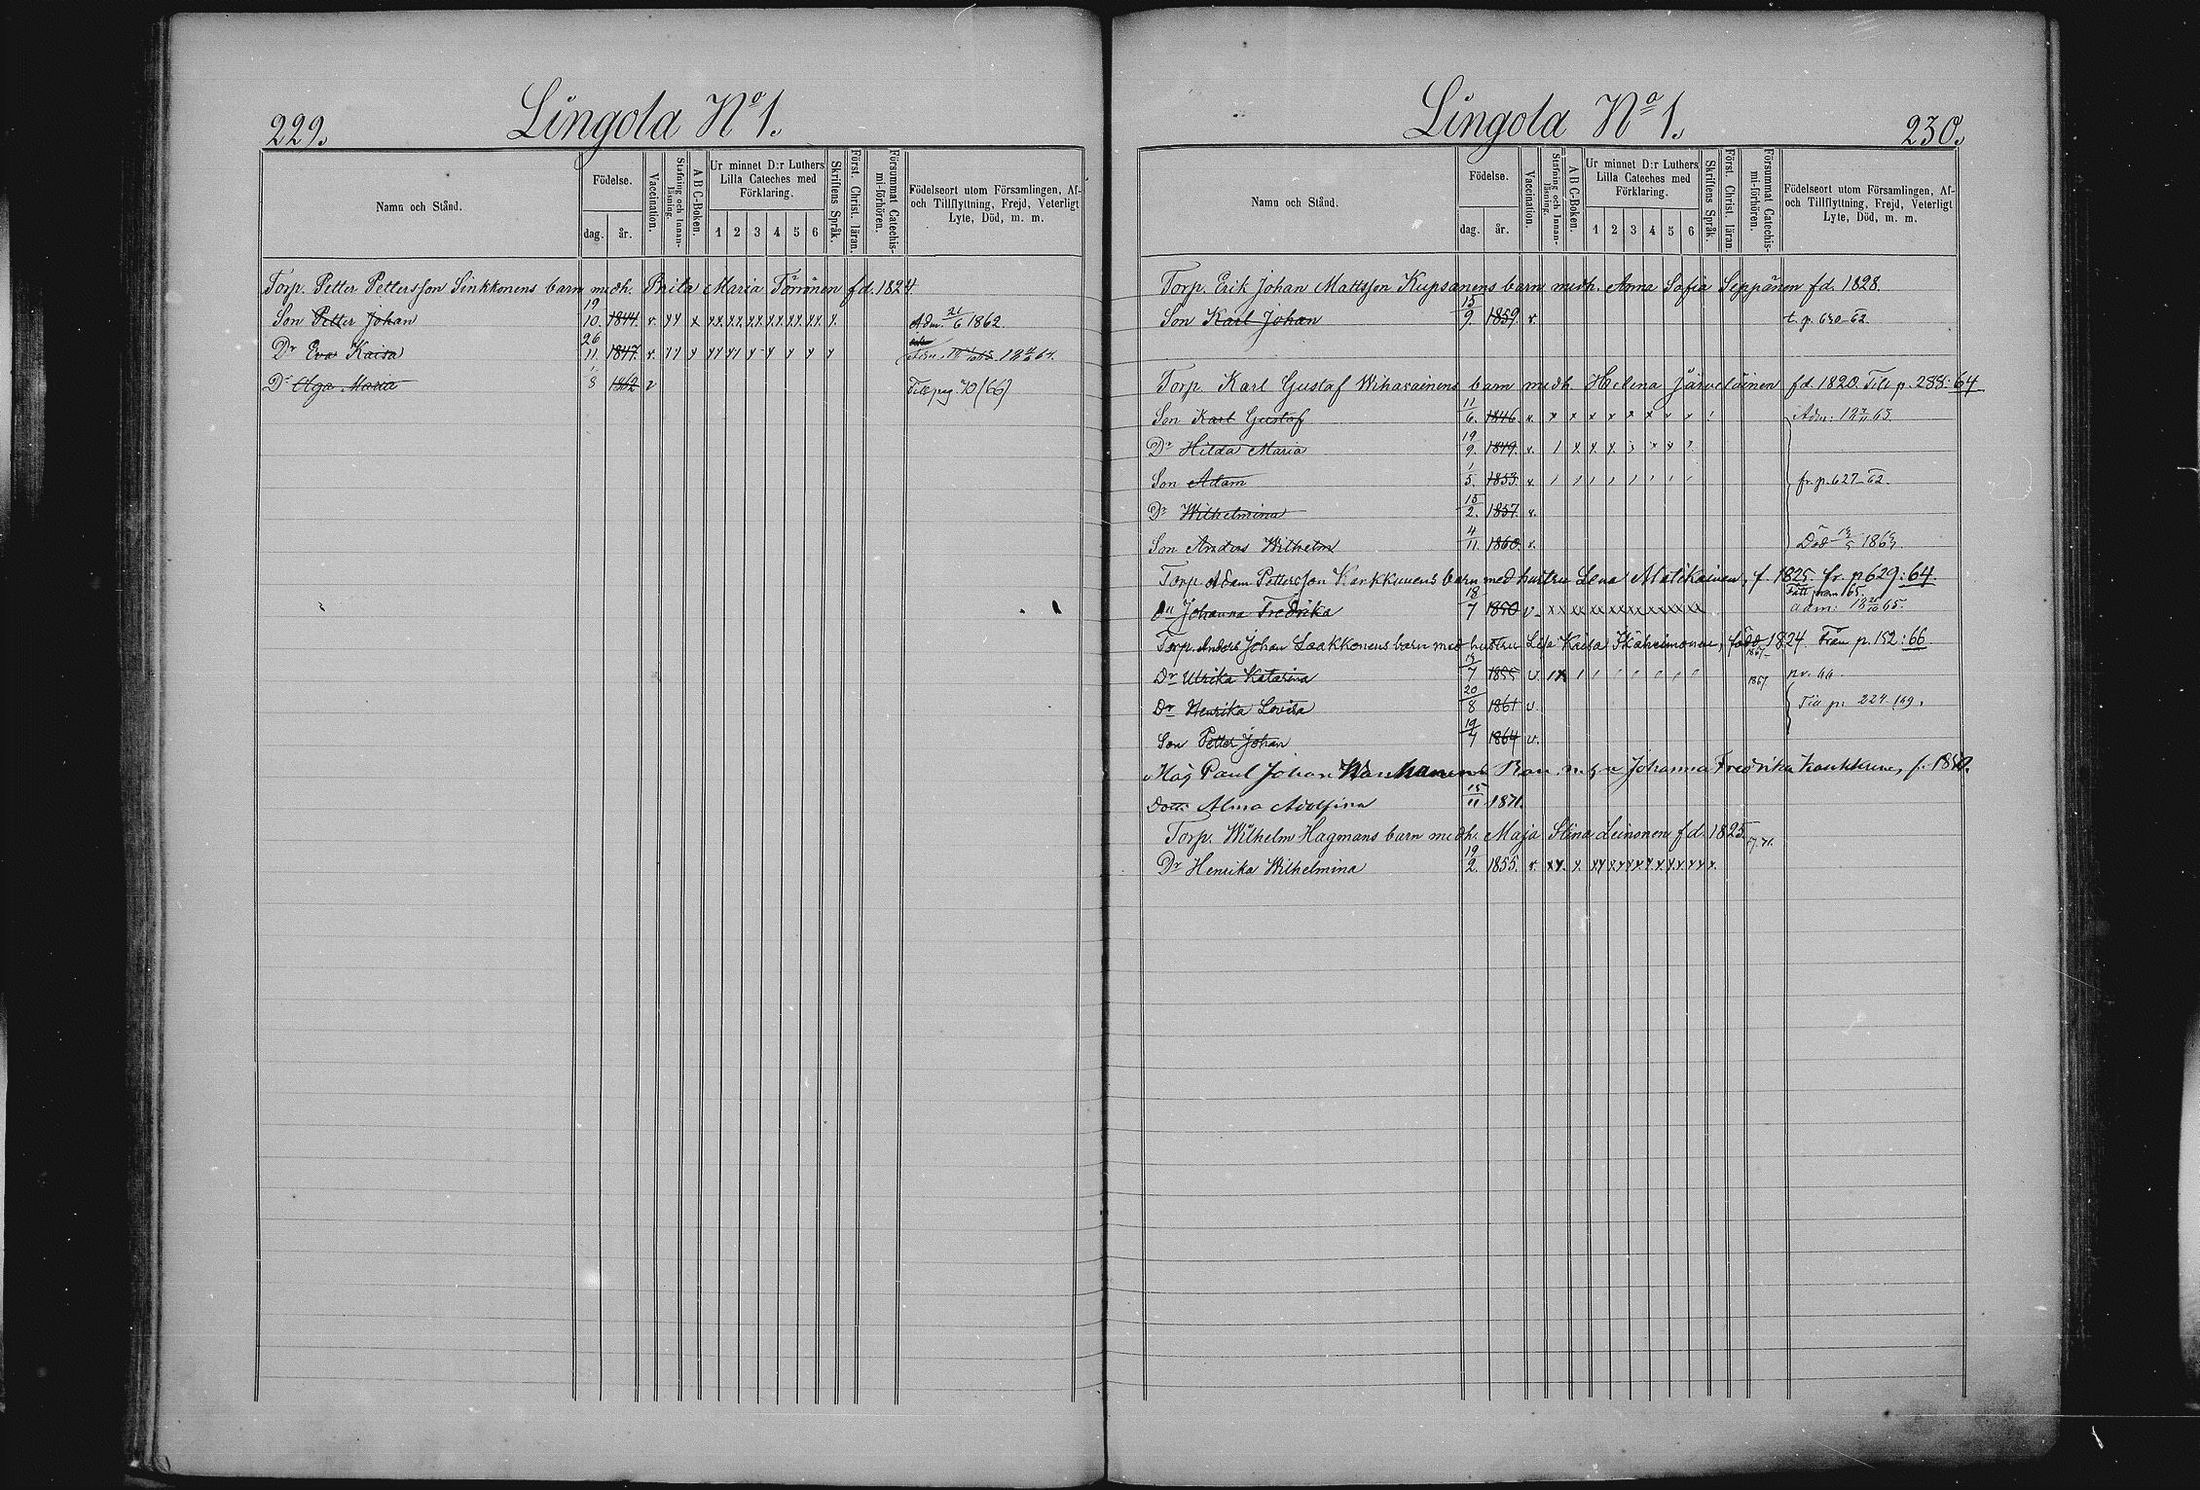 229.
Lingola No 1.
Namn och Stånd.
Födelse.
dag.
år.
Vaccination.
Stafning och Innan-
läsning.
A B C-Boken.
Ur minnet D:r Luthers
Lilla Cateches med
Förklaring.
1 2 3 4 5 6
Skriftens Språk.
Först. Christ. läran.
Försummat Catechis-
mi-förhören.
Födelseort utom Församlingen, Af-
och Tillflyttning, Frejd, Veterligt
Lyte, Död, m. m.
Torp. Petter Pettersson Sinkkonens barn medh. Brita Maria Törrönen fd. 1824
Son Petter Johan 19/10. 1844. v. Adm. 21/6 1862.
Dr Eva Kaisa 26/11. 1847. v.
Dr Olga Maria 1/8 1862 v Till pag. 70 (66)
Lingola No 1.
230.
Namn och Stånd.
Födelse.
dag.
år.
Vaccination.
Stafning och Innan-
läsning.
A B C-Boken.
Ur minnet D:r Luthers
Lilla Cateches med
Förklaring.
1 2 3 4 5 6
Skriftens Språk.
Först. Christ. läran.
Försummat Catechis-
mi-förhören.
Födelseort utom Församlingen, Af-
och Tillflyttning, Frejd, Veterligt
Lyte, Död, m. m.
Torp. Erik Johan Mattsson Kupsanens barn medh. Anna Sofia Seppänen fd. 1828.
Son Karl Johan 15/9. 1859 v. t. p. 630-62.
Torp. Karl Gustaf Wihavainens barn medh. Helena Järveläinen fd. 1820. Till p. 288: 64
Son Karl Gustaf 11/6. 1846 v.
Dr Hilda Maria 19/9. 1849. v.
Son Adam 1/5. 1853. v. fr. p. 627-62.
Dr Wilhelmina 15/2. 1857. v.
Son Anders Wilhelm 4/11. 1860. v. Död
Torp Adam Pettersson Karkkunens barn med hustru Lena Matikainen, f. 1825. fr. p 629: 64.
Dr Johanna Fredrika 18/7 1850 v.
Torp. Anders Johan Laakkonens barn med hustru Lisa Kaisa född 1824. Från p. 152: 66.
Dr Ulrika Katarina 7 1855 v. 1867
Dr Henrika Lovisa 20/8 1861 v. Till p. 224
Son Petter Johan 19/7 1864 v.
Paul Johan Johanna Fredrika
Dotter Alma Adolfina 15/11 1871.
Torp. Wilhelm Hagmans barn medh. Maja Stina Leinonen fd. 1825.
Dr Henrika Wilhelmina 19/2. 1855. v.